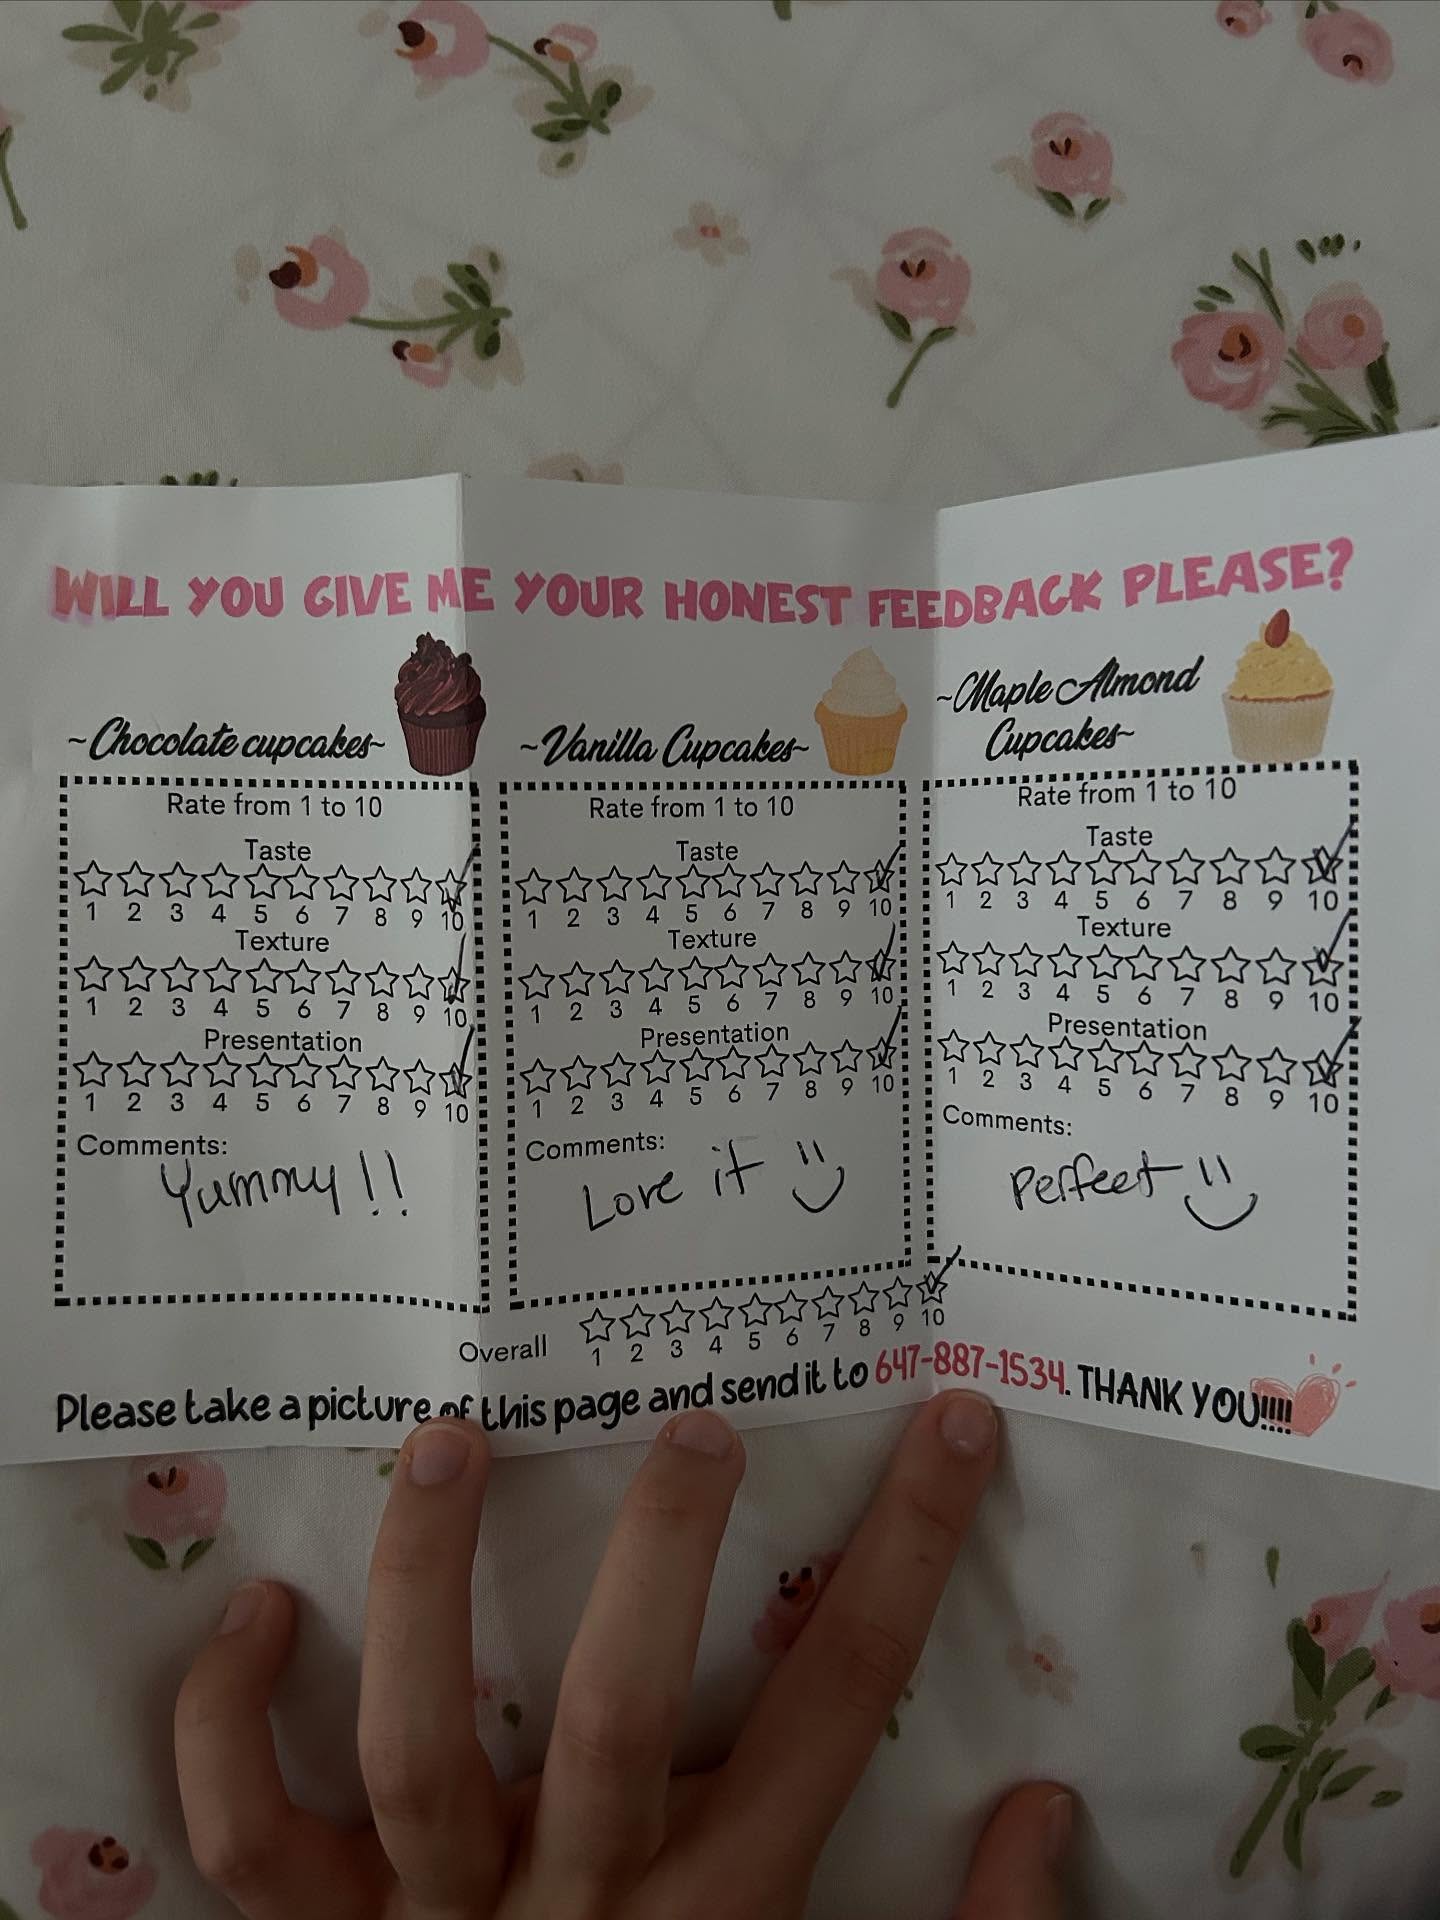 WILL YOU GIVE ME YOUR HONEST FEEDBACK PLEASE?
~Chocolate cupcakes~
Rate from 1 to 10
Taste
1 2 3 4 5 6 7 8 9 10
Texture
1 2 3 4 5 6 7 8 9 10
Presentation
1 2 3 4 5 6 7 8 9 10
Comments:
Yummy!!
~Vanilla Cupcakes~
Rate from 1 to 10
Taste
1 2 3 4 5 6 7 8 9 10
Texture
1 2 3 4 5 6 7 8 9 10
Presentation
1 2 3 4 5 6 7 8 9 10
Comments:
Love it
~Maple Almond
Cupcakes~
Rate from 1 to 10
Taste
1 2 3 4 5 6 7 8 9 10
Texture
1 2 3 4 5 6 7 8 9 10
Presentation
1 2 3 4 5 6 7 8 9 10
Comments:
Perfect
Overall 1 2 3 4 5 6 7 8 9 10
Please take a picture of this page and send it to 647-887-1534. THANK YOU!!!!